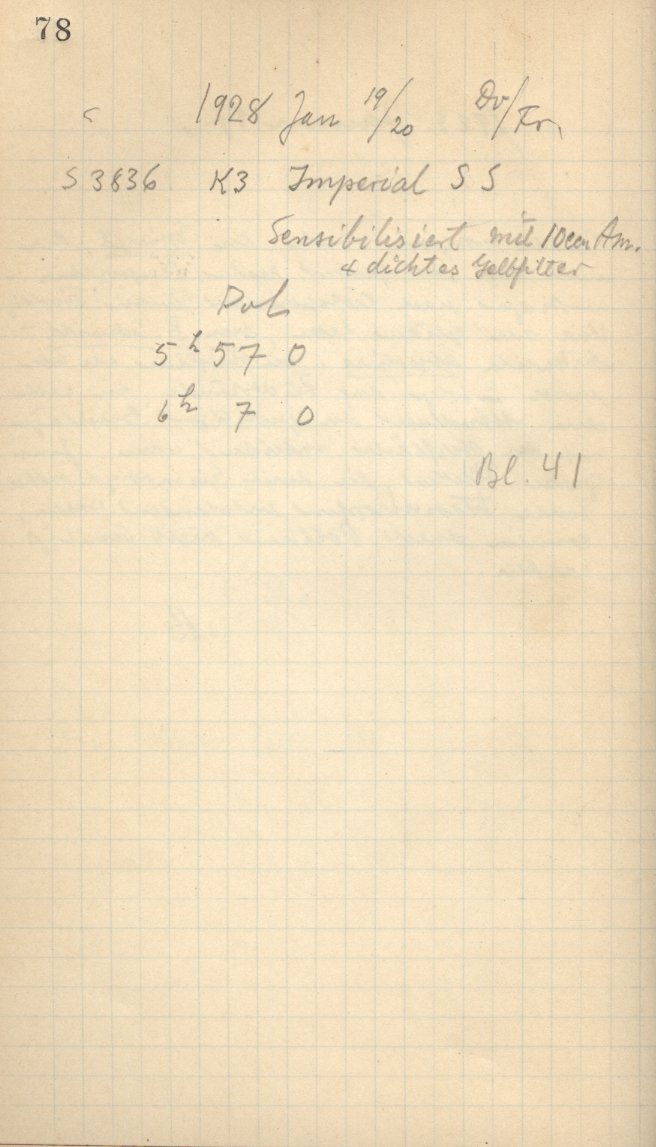 78
1928 Jan 19/20 Do/Fr.
S 3836 K3 Imperial S S
Sensibilisiert mit 10ccm Am.
+ dichtes Gelbfilter
Pol
5h 57 0
6h 7 0
Bl. 41